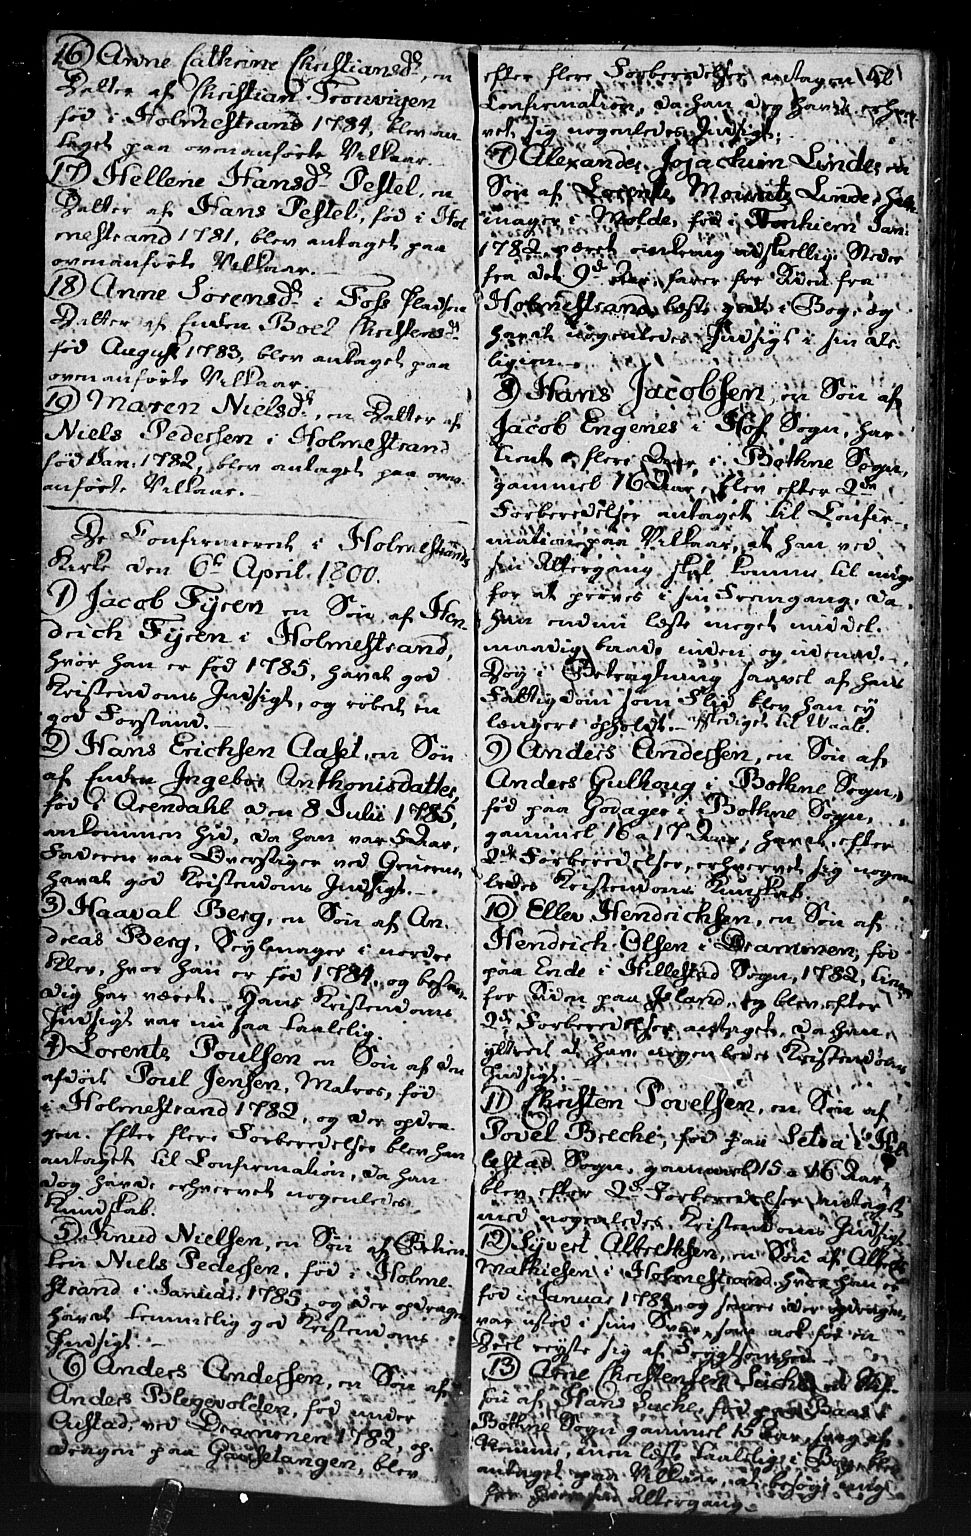 16) Anne Cathrine Christiansd., en
Datter af Christian Tronvigen
fød i Holmestrand 1784, blev an-
taget paa ovenanførte Vilkaar.
17) Hellene Hansd. Pestel, en
Datter af Hans Pestel, fød i Hol-
mestrand 1781, blev antaget paa
ovenanførte Vilkaar.
18) Anne Sørensd. i Foss Pladsen
Datter af Enken Boel Christensd.
fød August 1783, blev antaget paa
ovenanførte Vilkaar.
19) Maren Nielsd., en Datter af
Niels Pedersen i Holmestrand
fød Jan. 1782, blev antaget paa oven-
anførte Vilkaar.
De Confirmerede i Holmestrands
Kirke den 6t April 1800.
1) Jacob Fyren en Søn af Hen-
drich Fyren i Holmestrand,
hvor han er fød 1785, havde god
Kristendoms Indsigt, og røbede en
god Forstand.
2) Hans Erichsen Aaset, en Søn
af Enken Ingebor Anthonisdatter,
fød i Arendahl den 8 Julii 1785,
ankommen hid, da han var 5 Aar,
Faderen var Overstiger ved Gruerne,
havde god Kristendoms Indsigt.
3) Haaval Berg, en Søn af An-
dreas Berg, Seylmager i nordre
Klev, hvor han er fød 1784, og bestan-
dig har været. Hans Kristendoms
Indsigt var nu saa taalelig.
4) Lorents Poulsen en Søn af den
afdøde Poul Jensen, Matros, fød
i Holmestrand 1782, og der opdra-
gen. Efter flere Forberedelser blev han
antaget til Confirmation, da han
dog havde erhvervet nogenledes
Kundskab.
5) Knud Nielsen, en Søn af
Niels Pedersen, fød i Holme-
strand i Januar 1785, og der opdragen
havde temmelig god Kristendoms
Indsigt.
6) Anders Andersen, en Søn af
Anders Blegevolden, fød under
Austad ved Drammen 1782, op-
dragen paa Gausetangen, blev
efter flere Forberedelser antagen til
Confirmation, da han dog havde erhver-
vet sig nogenledes Indsigt.
7) Alexander Jojachim Linde, en
Søn af Lorents Mourits Linde,
mager i Molde, fød i Tronhiem Jan.
1782, været omkring adskellige Steder
fra det 9de Aar, farer for Tiden fra
Holmestrand, læste godt i Bog, og
havde nogenledes Indsigt i sin Re-
ligion.
8) Hans Jacobsen, en Søn af
Jacob Engenes i Hof Sogn, har
tient flere Aar i Bothne Sogn,
gammel 16 Aar, blev efter 2de
Forberedelser antaget til Confir-
mation paa Vilkaar, at han ved
sin Altergang skal komme til mig
for at prøves i sin Fremgang, da
han endnu læste meget middel-
maadig baade inden og udenad.
Dog i Betragtning saavel af hans
Fattigdom som Flid blev han ey
længere opholdt.
9) Anders Andersen, en Søn af
Anders Gulhoug i Bothne Sogn,
fød paa Hodager i Bothne Sogn,
gammel 16 a 17 Aar, havde efter
2de Forberedelser, erhvervet sig nogen-
ledes Kristendoms Kundskab.
10) Ellev Hendrichsen, en Søn af
Hendrich Olsen i Drammen, fød
paa Ende i Hillestad Sogn, 1782, tiener
for Tiden paa Island, og blev efter
2de Forberedelser antaget, da han
yttrede at have nogenledes Kristendoms
Indsigt.
11) Christen Povelsen, en Søn af
Povel Breche, fød paa Letva i Hil-
lestad Sogn, gammel 15 a 16 Aar,
blev efter 2de Forberedelser antaget
med nogenledes Kristendoms Indsigt.
12) Syvert Albrethsen, en Søn af Albret
Mathiesen i Holmestrand, hvor han er
fød i Januar 1784, og senere der opdragen,
var ustød i sine Svar, som nok for en
Deel reyste sig af Frygtsomhed.
13) Arne Christensen Suche, en
søn af Hans Suche, fød paa Baas i
Bothne Sogn gammel 15 Aar, svag af
Nemme, men læste taalelig i Bog, blev
antaget paa Vilkaar, at besøge mig
før hver sin Altergang.